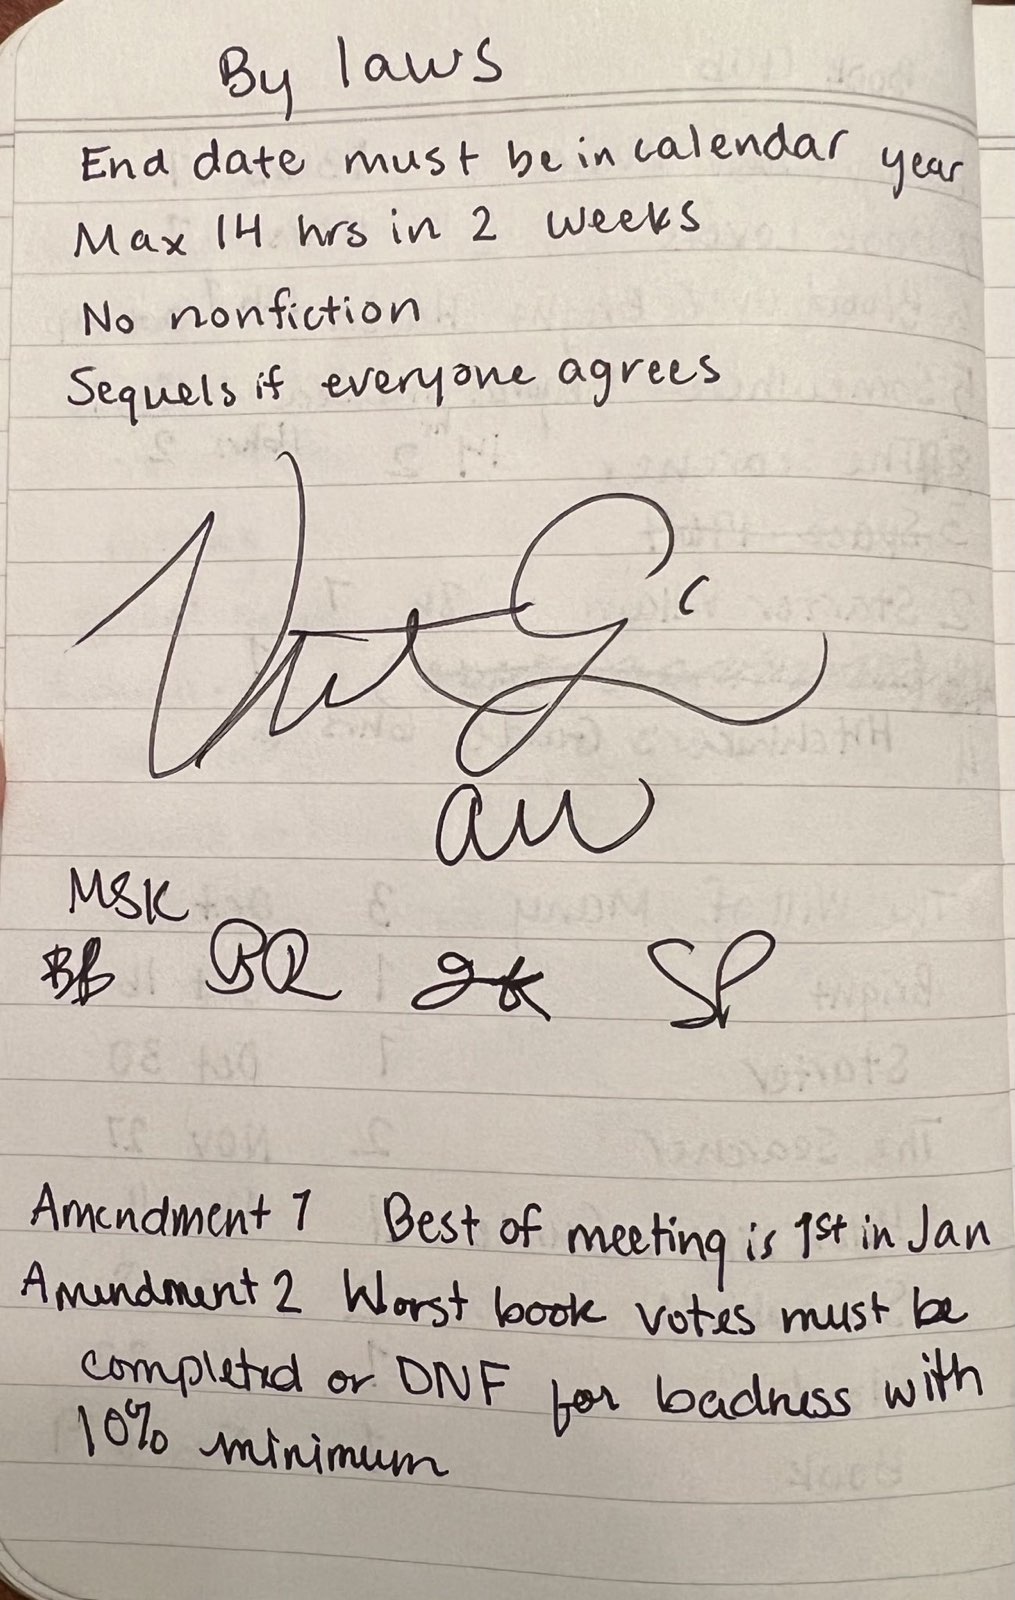 By laws
End date must be in calendar year
Max 14 hrs in 2 weeks
No nonfiction
Sequels if everyone agrees
aw
MSK
BB BR SP
Amendment 1 Best of meeting is 1st in Jan
Amendment 2 Worst book votes must be
completed or DNF for badness with
10% minimum